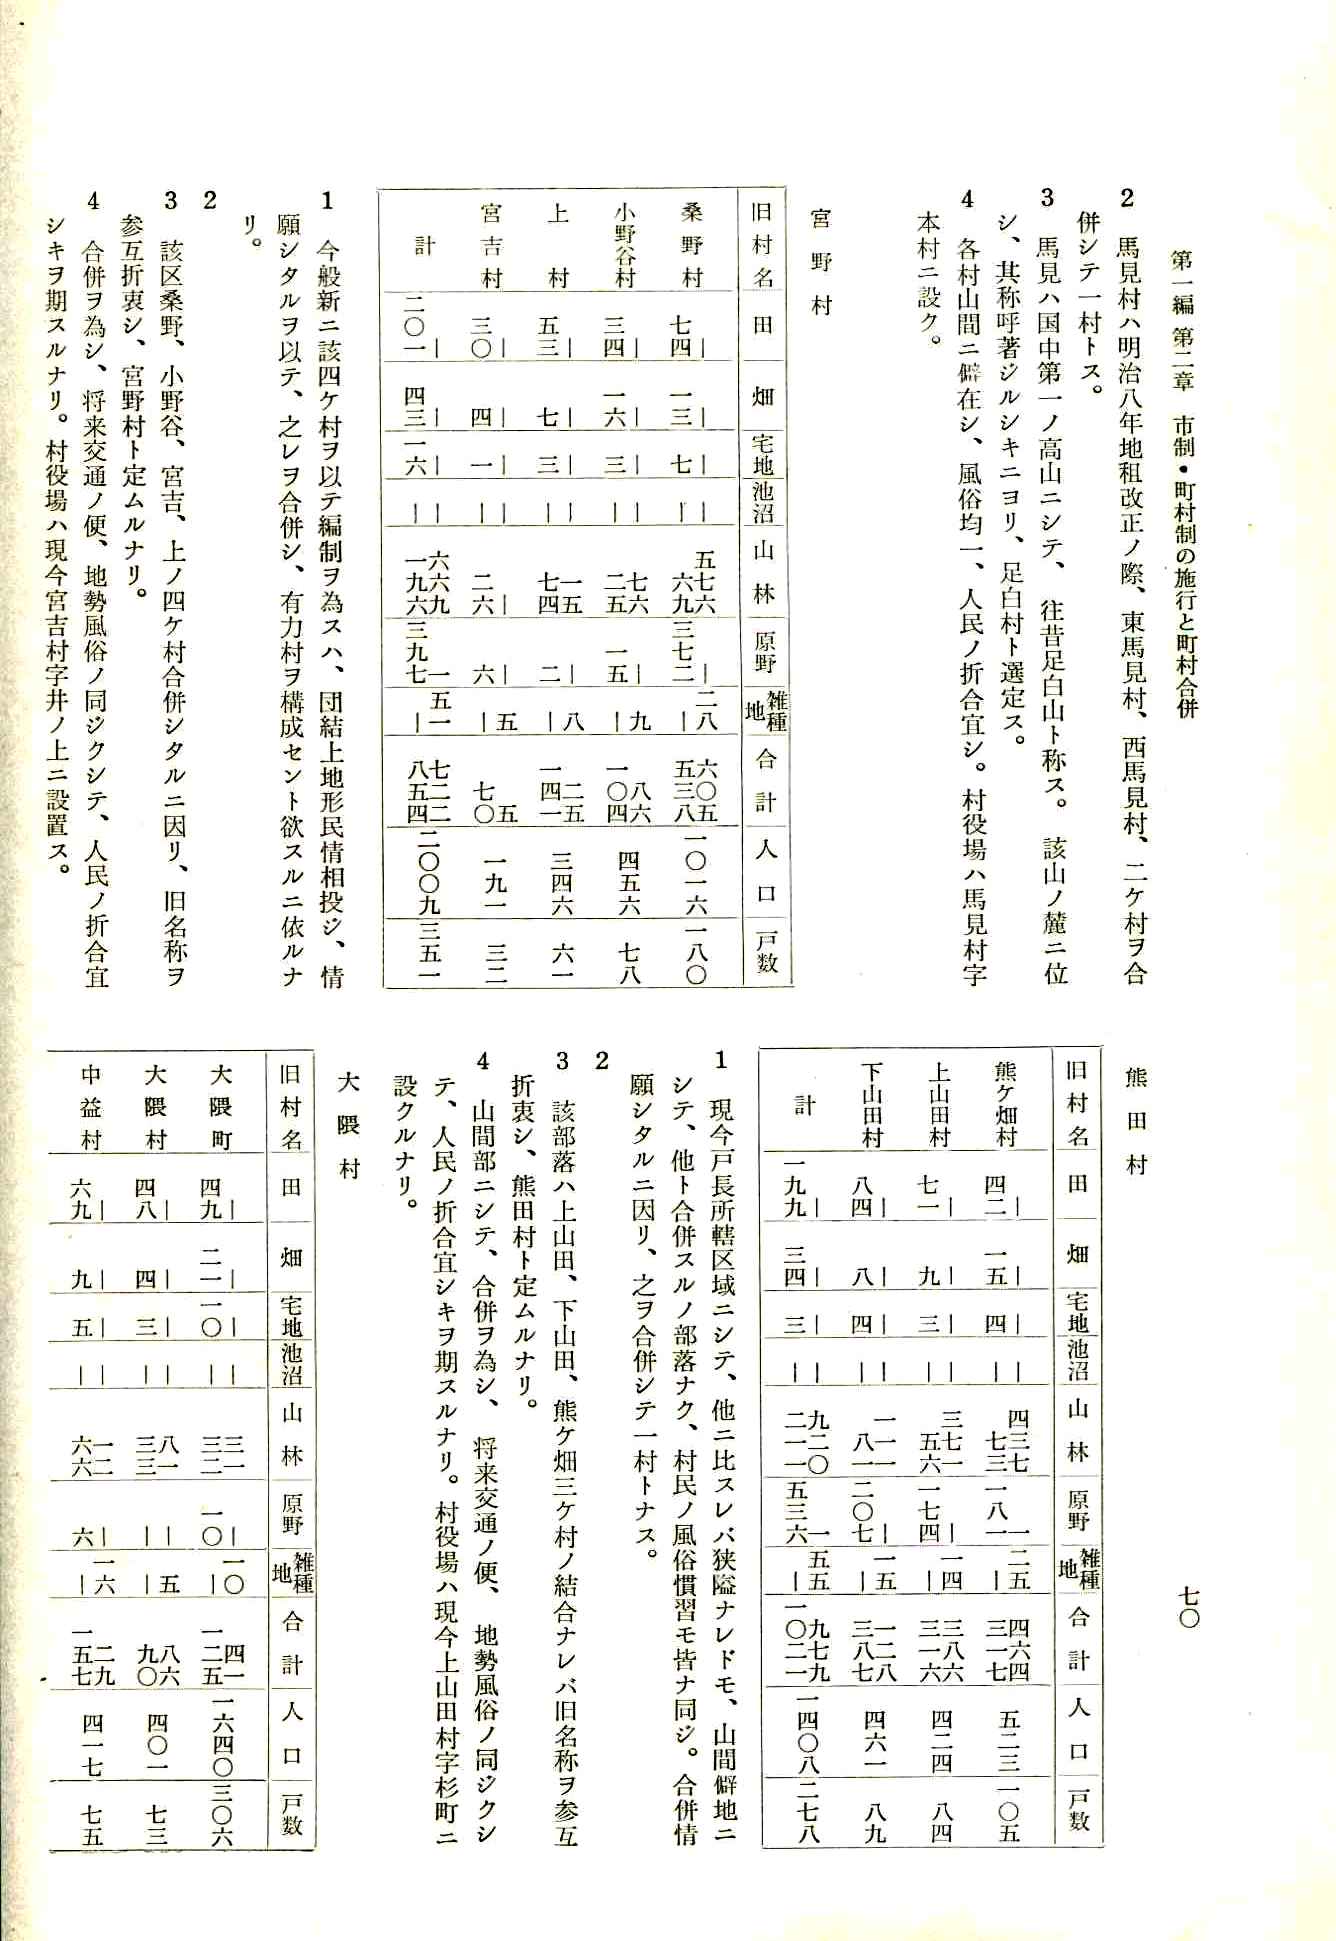 第一編 第二章 市制・町村制の施行と町村合併
2 馬見村ハ明治八年地租改正ノ際、東馬見村、西馬見村、二ケ村ヲ合
併シテ一村トス。
3 馬見ハ国中第一ノ高山ニシテ、往昔足白山ト称ス。該山ノ麓ニ位
シ、其称呼著ジルシキニヨリ、足白村ト選定ス。
4 各村山間ニ僻在シ、風俗均一、人民ノ折合宜シ。村役場ハ馬見村字
本村ニ設ク。
宮野村
旧村名 田 畑 宅地 池沼 山林 原野 雑種地 合計 人口 戸数
桑野村 ― 七四 ― 一三 ― 七 ― ― 五七六 六九 ― 三七二 二八 ― 六〇五 五三八 一〇一六 一八〇
小野谷村 ― 三四 ― 一六 ― 三 ― ― 七六 二五 ― 一五 九 ― 八六 一〇四 四五六 七八
上村 ― 五三 ― 七 ― 三 ― ― 一五 七四 ― 二 八 ― 二五 一四一 三四六 六一
宮吉村 ― 三〇 ― 四 ― 一 ― ― ― 二六 ― 六 五 ― 五 七〇 一九一 三二
計 ― 二〇一 ― 四三 ― 一六 ― ― 六六九 一九六 一 三九七 五一 ― 七二二 八五四 二〇〇九 三五一
1 今般新ニ該四ケ村ヲ以テ編制ヲ為スハ、団結上地形民情相投ジ、情
願シタルヲ以テ、之レヲ合併シ、有力村ヲ構成セント欲スルニ依ルナ
リ。
2
3 該区桑野、小野谷、宮吉、上ノ四ケ村合併シタルニ因リ、旧名称ヲ
参互折衷シ、宮野村ト定ムルナリ。
4 合併ヲ為シ、将来交通ノ便、地勢風俗ノ同ジクシテ、人民ノ折合宜
シキヲ期スルナリ。村役場ハ現今宮吉村字井ノ上ニ設置ス。
七〇
熊田村
旧村名 田 畑 宅地 池沼 山林 原野 雑種地 合計 人口 戸数
熊ケ畑村 ― 四二 ― 一五 ― 四 ― ― 四三七 七三 一 一八一 二五 ― 四六四 三一七 五二三 一〇五
上山田村 ― 七一 ― 九 ― 三 ― ― 三七一 五六 ― 一七四 一四 ― 三八六 三一六 四二四 八四
下山田村 ― 八四 ― 八 ― 四 ― ― 一一一 八一 ― 二〇七 一五 ― 一二八 三八七 四六一 八九
計 ― 一九九 ― 三四 ― 三 ― ― 九二〇 二一一 一 五三六 五五 ― 九七九 一〇二一 一四〇八 二七八
1 現今戸長所轄区域ニシテ、他ニ比スレバ狭隘ナレドモ、山間僻地ニ
シテ、他ト合併スルノ部落ナク、村民ノ風俗慣習モ皆ナ同ジ。合併情
願シタルニ因リ、之ヲ合併シテ一村トナス。
2
3 該部落ハ上山田、下山田、熊ケ畑三ケ村ノ結合ナレバ旧名称ヲ参互
折衷シ、熊田村ト定ムルナリ。
4 山間部ニシテ、合併ヲ為シ、将来交通ノ便、地勢風俗ノ同ジクシ
テ、人民ノ折合宜シキヲ期スルナリ。村役場ハ現今上山田村字杉町ニ
設クルナリ。
大隈村
旧村名 田 畑 宅地 池沼 山林 原野 雑種地 合計 人口 戸数
大隈町 ― 四九 ― 二一 ― 一〇 ― ― 三一 三二 ― 一〇 一〇 ― 四一 一二五 一六四〇 三〇六
大隈村 ― 四八 ― 四 ― 三 ― ― 八一 三三 ― ― 五 ― 八六 九〇 四〇一 七三
中益村 ― 六九 ― 九 ― 五 ― ― 一二 六六 ― 六 一六 ― 二九 一五七 四一七 七五